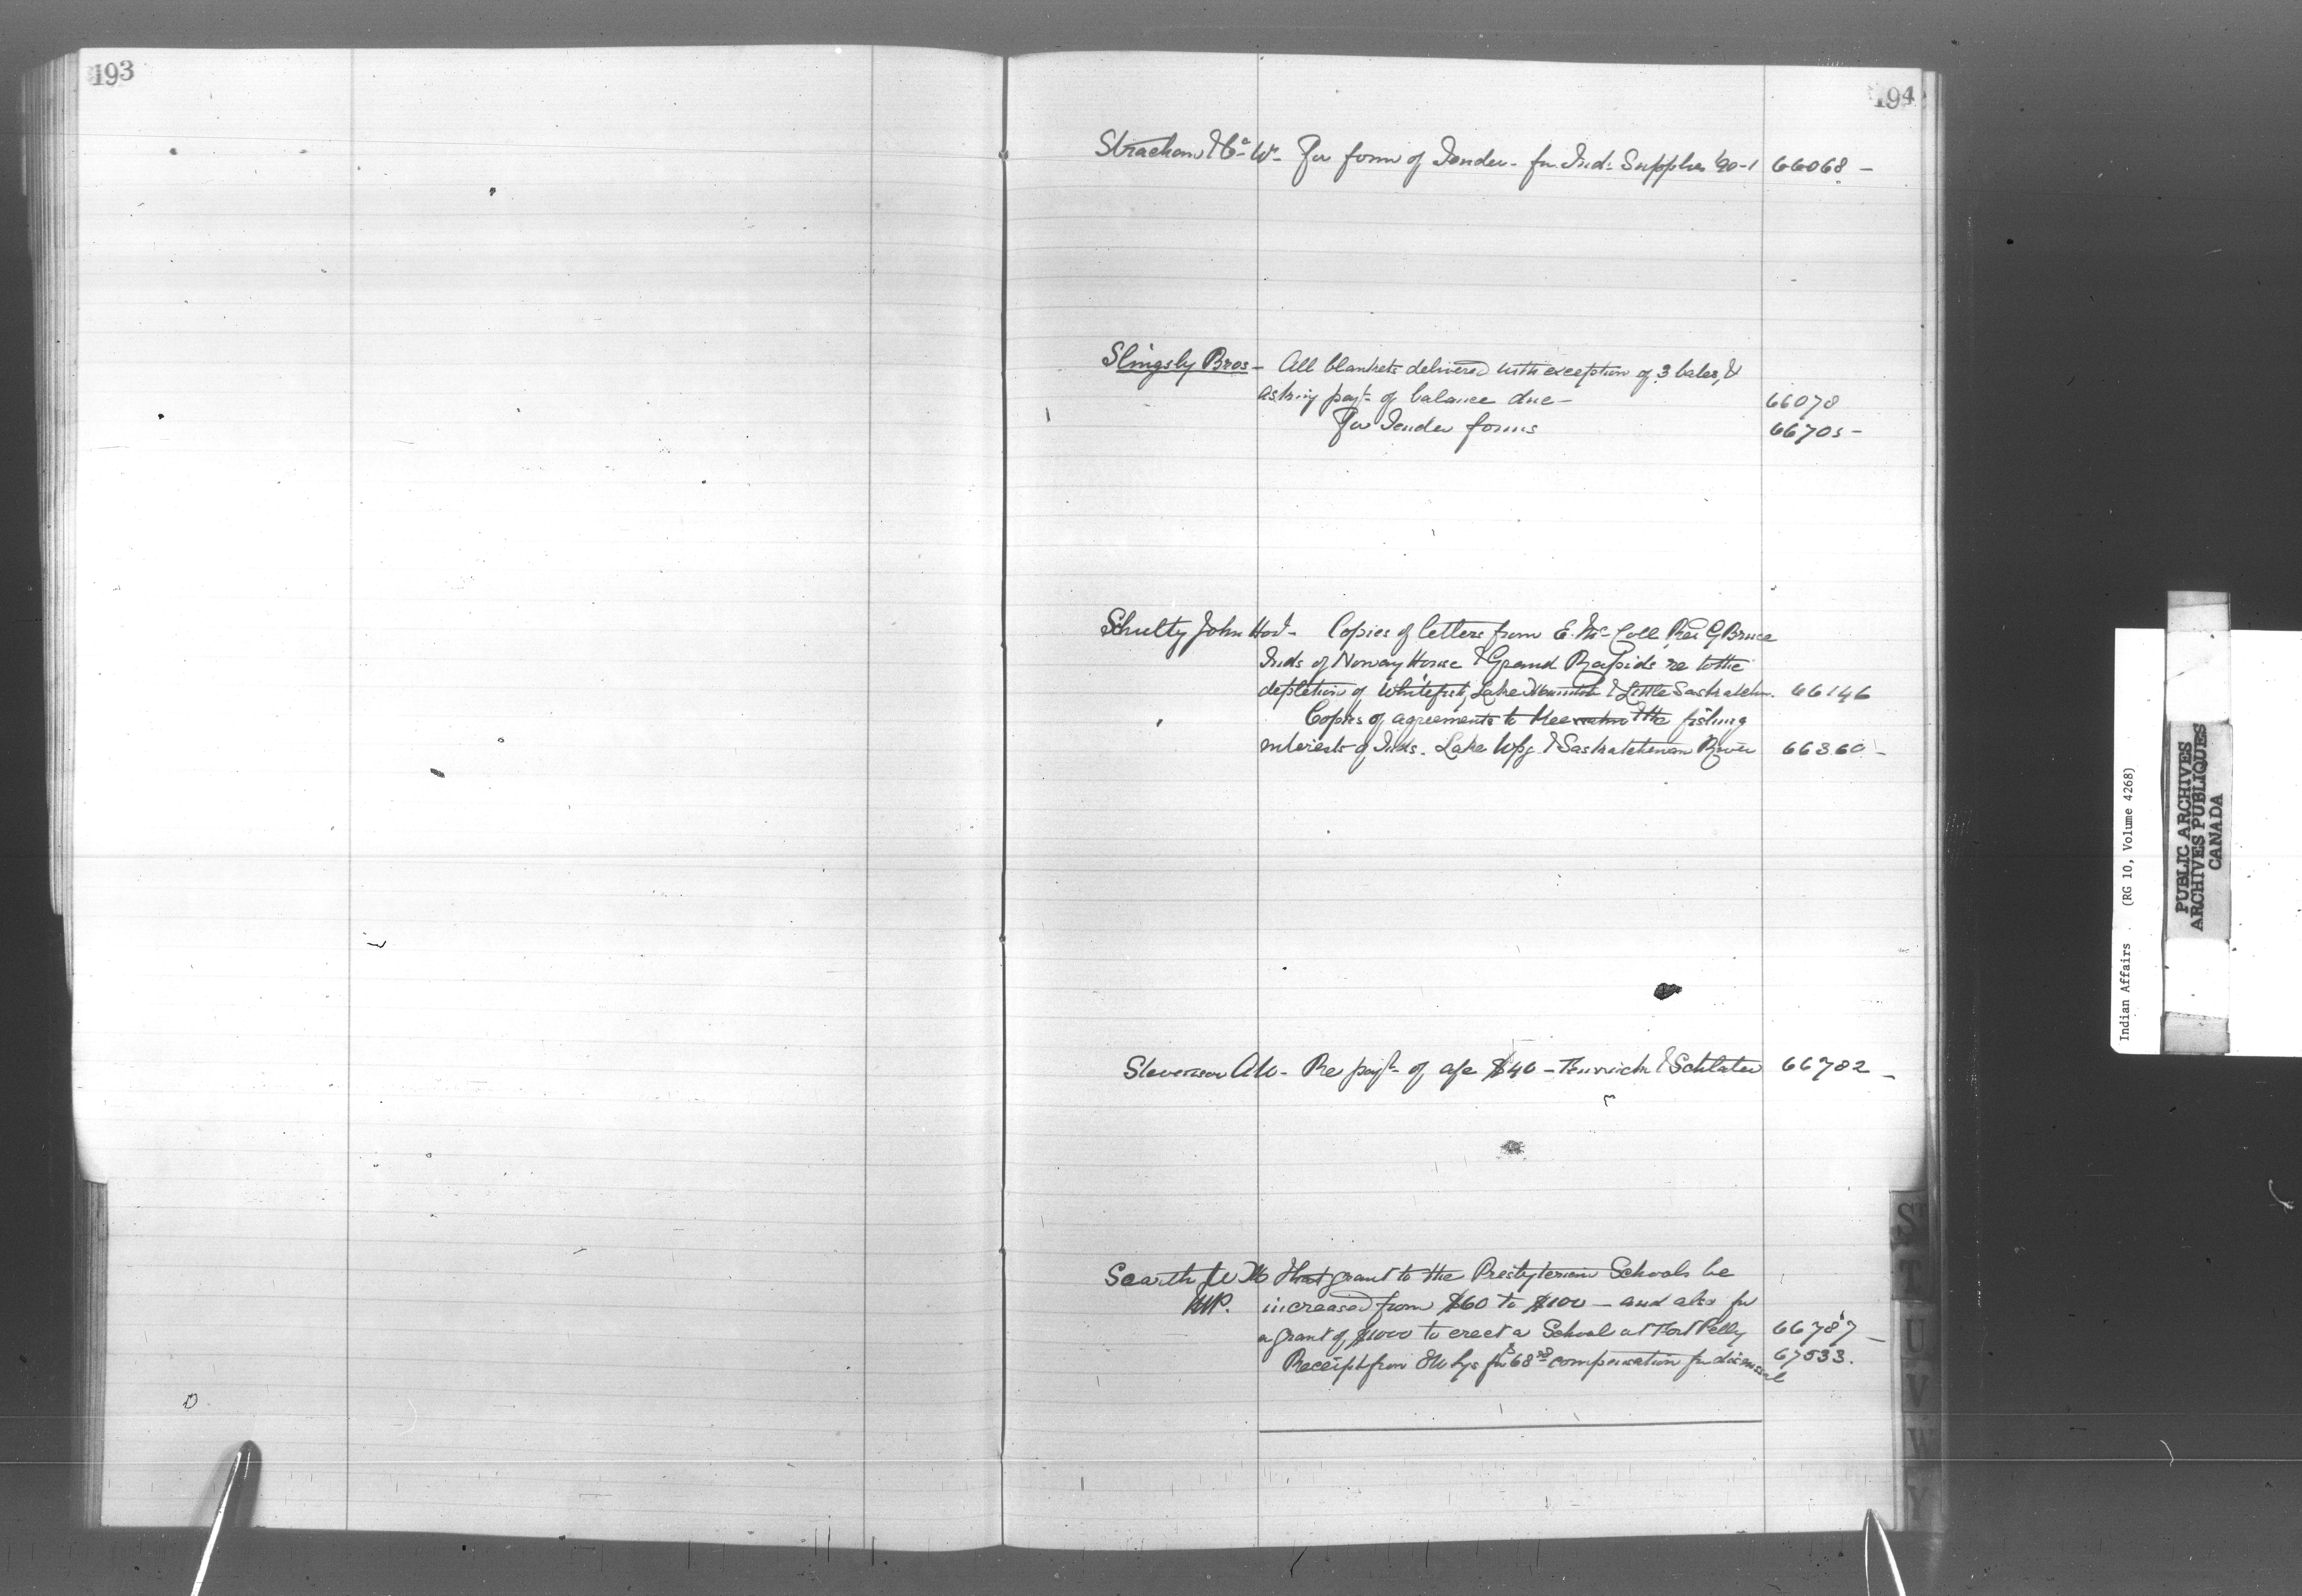 193
194
Strachan & Co W. For form of Tender - for Inds Supplies '90-1 66068 -
Slingsby Bros - All blankets delivered with exception of 3 bales, &
asking payt. of balance due - 66078
For Tender forms 66705 -
Schultz John Hon. - Copies of letters from E. McColl, Rev G Bruce
Inds of Norway House & Grand Rapids re to the
depletion of Whitefish, Lake & Little Saskatchn. 66146
Copies of agreements to the fishing
interests of Inds. Lake Wpg. & Saskatchewan River 66360 -
Stevenson A W - Re payt. of a/c $40 - Fenwick & Sclater 66782 -
Scarth W B That grant to the Presbyterian Schools be
MP. increased from $60 to $100 - and also for
a grant of $1000 to erect a School at Fort Pelly 66787 -
Receipt from for $68 compensation for dismissal 67533.
S
T
U
V
W
Y
Indian Affairs . (RG 10, Volume 4268)
PUBLIC ARCHIVES
ARCHIVES PUBLIQUES
CANADA